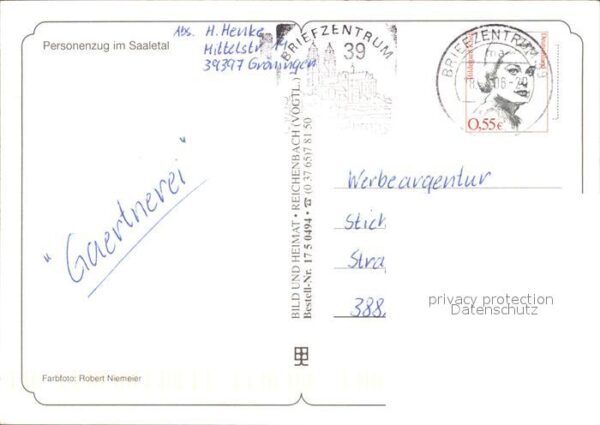 Personenzug im Saaletal
Abs. H. Henke
Mittelstr. 14
39397 Gröningen
BRIEFZENTRUM
39
BRIEFZENTRUM 39
0,55€
"Gaertnerei"
BILD UND HEIMAT • REICHENBACH (VOGTL.)
Bestell-Nr. 17 5 0494 • ☎ (0 37 65) 7 81 50
Werbeargentur
Stick
Stra
388
privacy protection
Datenschutz
Farbfoto: Robert Niemeier